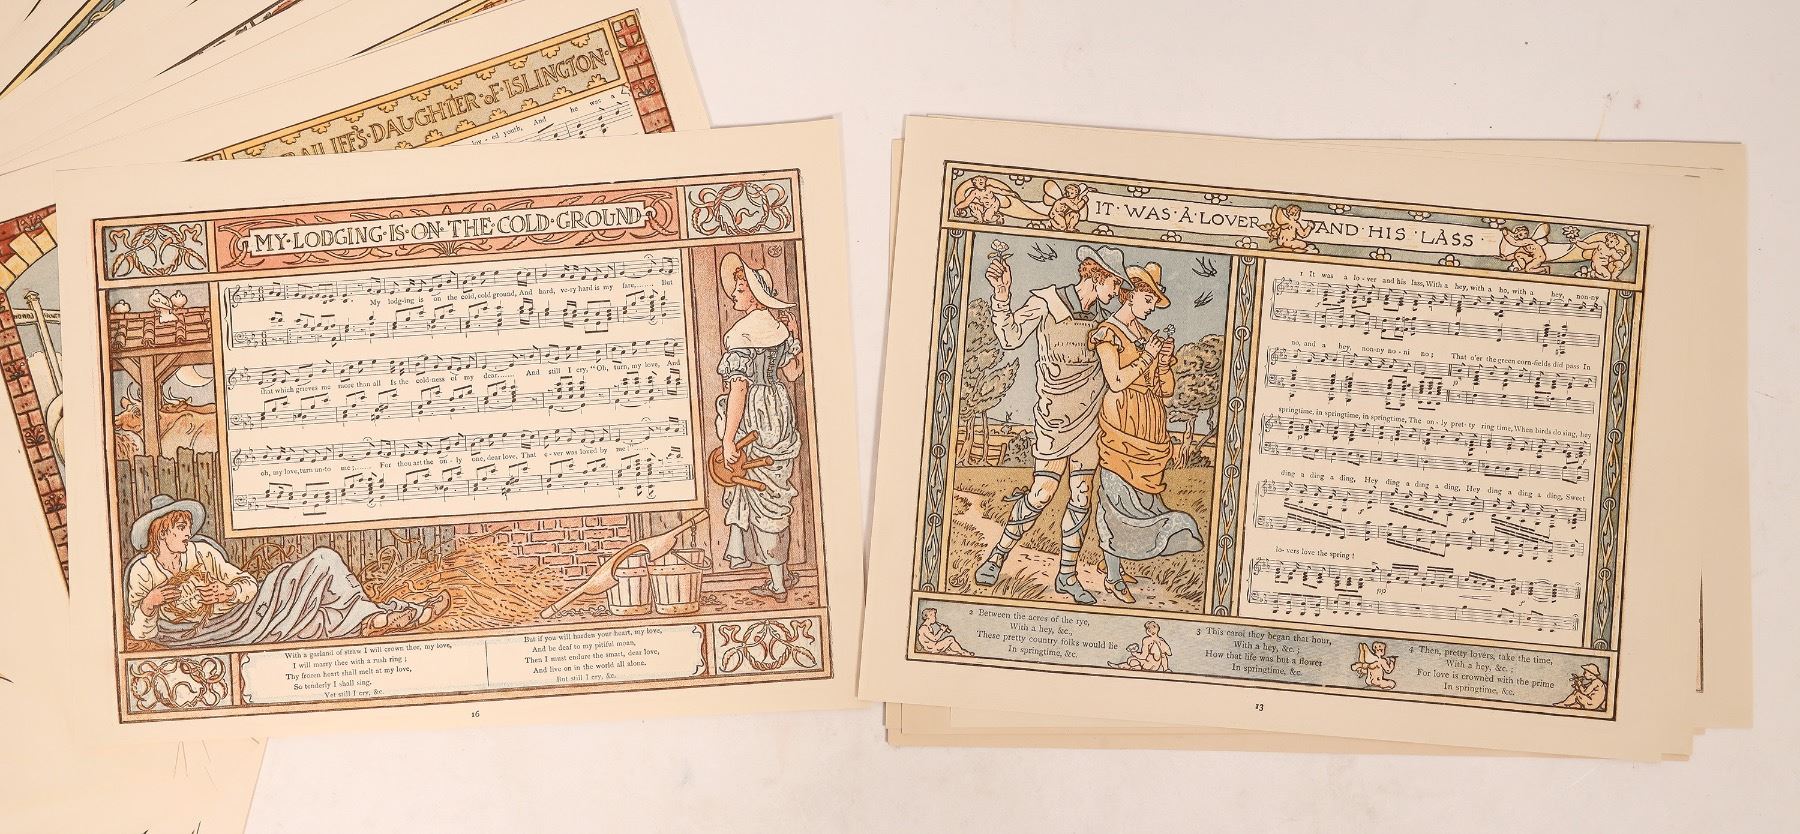 BAILIFF'S·DAUGHTER·OF·ISLINGTON·
ed youth, And he was a
MY·LODGING·IS·ON·THE·COLD·GROUND·
My lodg-ing is on the cold, cold ground, And hard, ve-ry hard is my fare,...... But
that which grieves me more than all Is the cold-ness of my dear....... And still I cry, "Oh, turn, my love, And
oh, my love, turn un-to me;...... For thou art the on-ly one, dear love, That e-ver was loved by me!"......
With a garland of straw I will crown thee, my love,
I will marry thee with a rush ring;
Thy frozen heart shall melt at my love,
So tenderly I shall sing.
Yet still I cry, &c.
But if you will harden your heart, my love,
And be deaf to my pitiful moan,
Then I must endure the smart, dear love,
And live on in the world all alone.
But still I cry, &c.
16
IT·WAS·A·LOVER AND·HIS·LASS·
1 It was a lo-ver and his lass, With a hey, with a ho, with a hey, non-ny
no, and a hey, non-ny no-ni no; That o'er the green corn-fields did pass In
springtime, in springtime, in springtime, The on-ly pret-ty ring time, When birds do sing, hey
ding a ding, ding, Hey ding a ding a ding, Hey ding a ding a ding, Sweet
lo-vers love the spring!
2 Between the acres of the rye,
With a hey, &c.,
These pretty country folks would lie
In springtime, &c.
3 This carol they began that hour,
With a hey, &c.;
How that life was but a flower
In springtime, &c.
4 Then, pretty lovers, take the time,
With a hey, &c.;
For love is crowned with the prime
In springtime, &c.
13